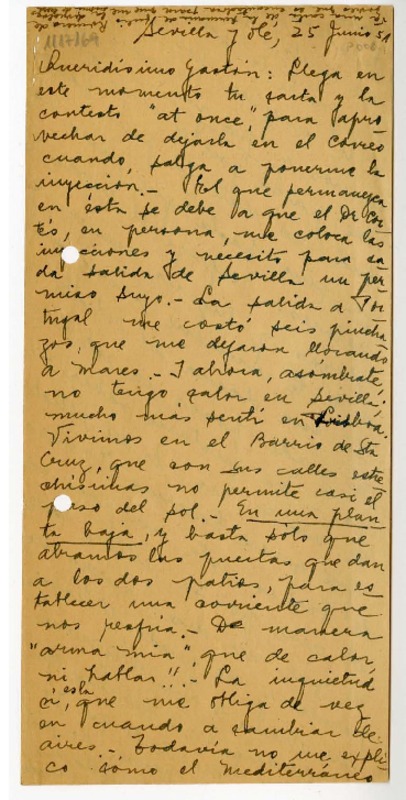 Sevilla y olé, 25 Junio 51
Queridísimo Gastón: Llega en
este momento tu carta y la
contesto "at once", para apro
vechar de dejarla en el correo
cuando salga a ponerme la
inyección.- El que permanezca
en ésta se debe a que el Dr. Cor
tés, en persona, me coloca las
inyecciones y necesito para ca
da salida de Sevilla un per
miso suyo.- La salida a Por
tugal me costó seis pincha
zos, que me dejaron llorando
a mares.- I ahora, asómbrate,
no tengo calor en Sevilla;
mucho más sentí en Lisboa.
Vivimos en el Barrio de Sta
Cruz, que con sus calles estre
chísimas no permite casi el
paso del sol.- En una plan
ta baja, y basta sólo que
abramos las puertas que dan
a los dos patios, para es
tablecer una corriente que
nos resfría.- De manera
"arma mía", que de calor,
ni hablar!!.- La inquietud
es la
que me obliga de vez
en cuando a cambiar de
aires.- Todavía no me expli
co cómo el Mediterráneo